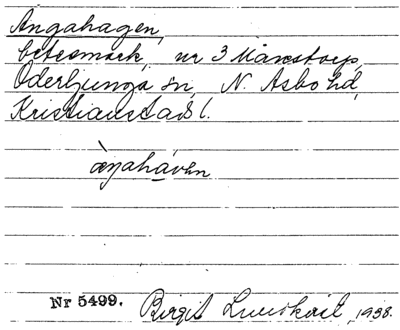 Ängahagen,
betesmark, nr 3 Månstorp,
Oderljunga sn, N. Åsbo hd,
Kristianstads l.
Nr 5499. Birgit 1938.